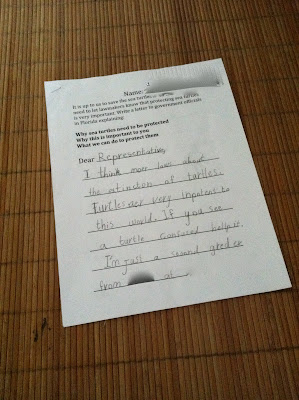 Name:
It is up to us to save the sea turtles
need to let lawmakers know that protecting sea turtles
is very important. Write a letter to government officials
in Florida explaining:
Why sea turtles need to be protected
Why this is important to you
What we can do to protect them
Dear Representative,
I think more laws about
the extinction of turtles.
Turtles are very impotent to
this world. If you see
a turtle confused help it.
I'm just a second greder
from at